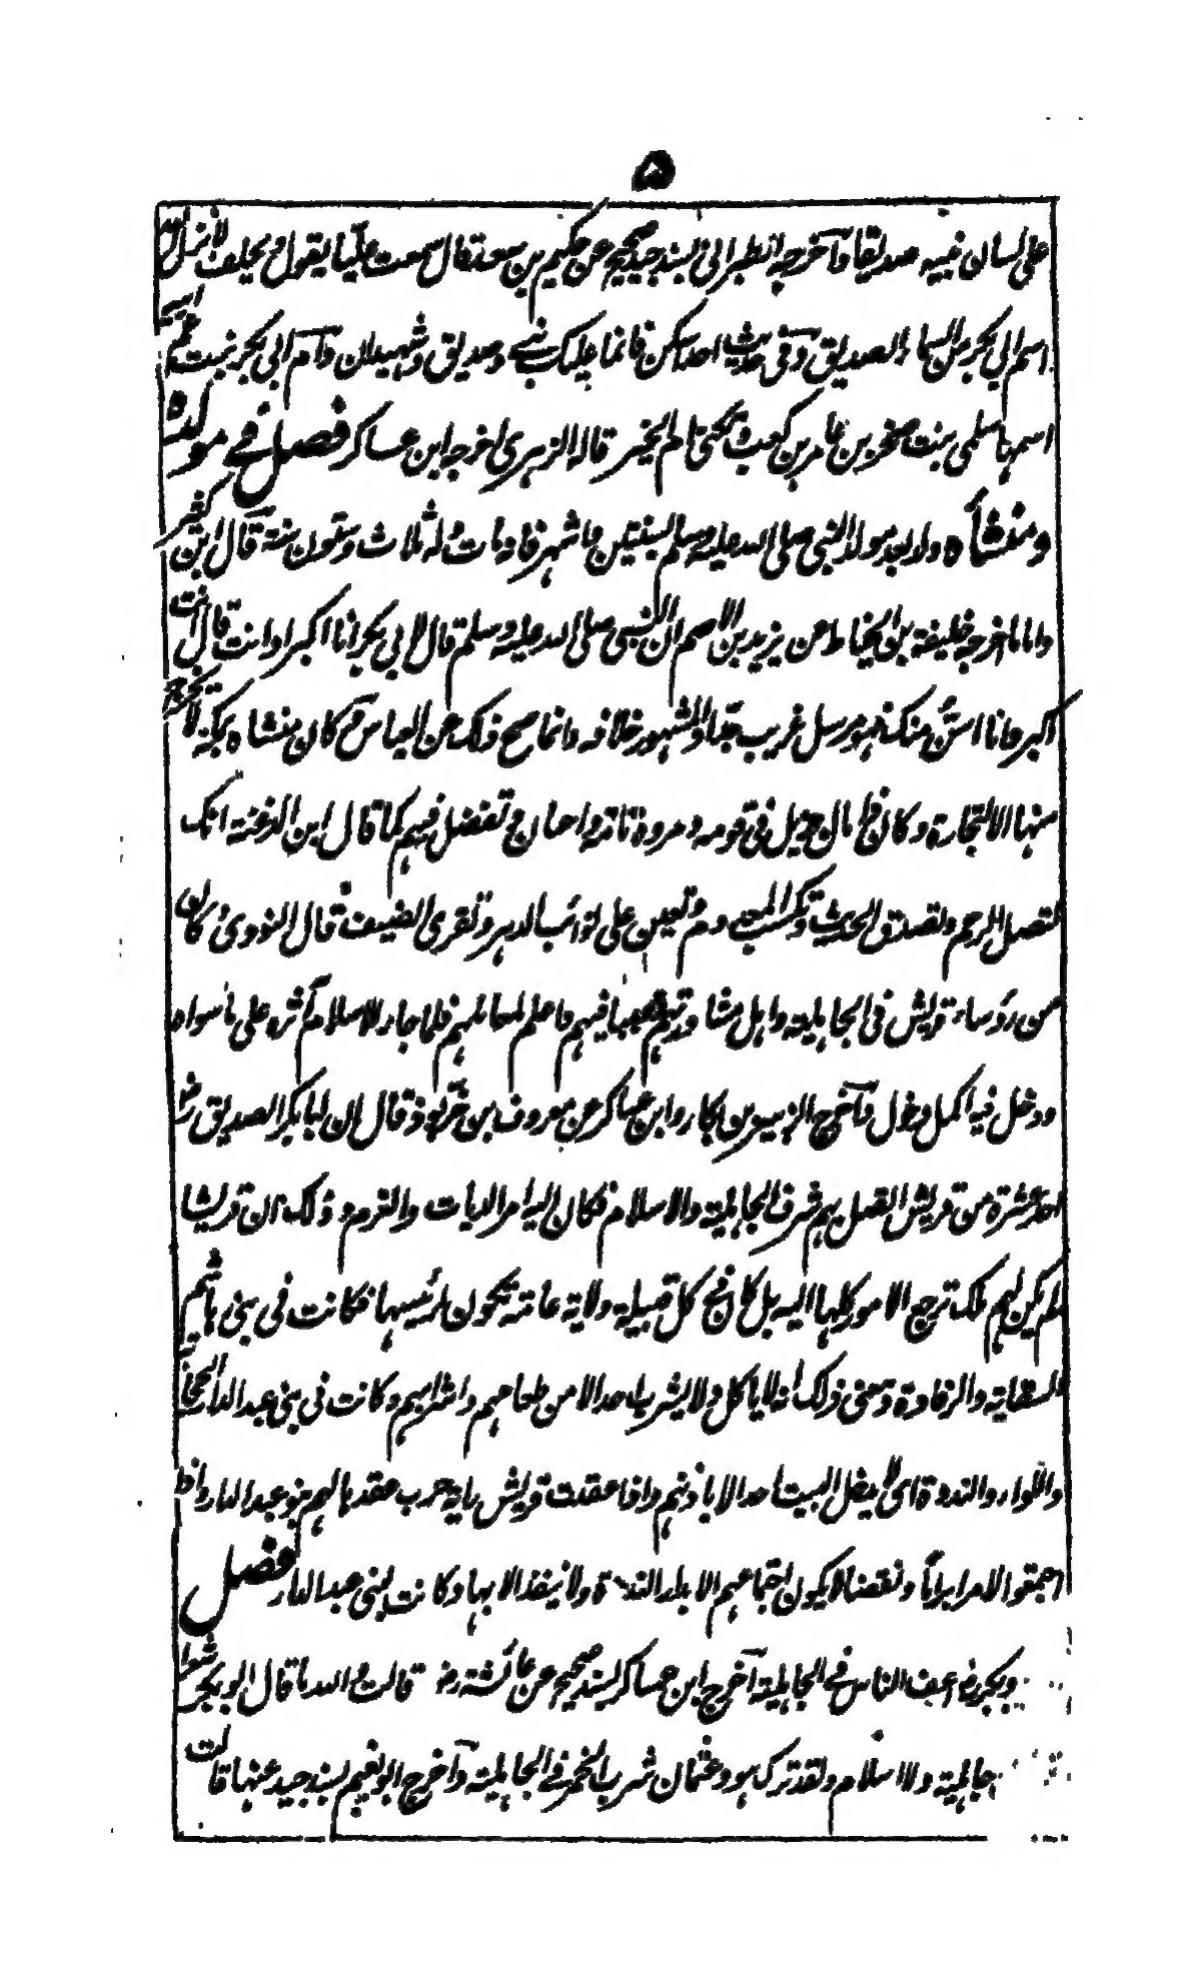 ۵
على لسان نبيه صديقا وآخرجه الطبراني بسند جيد صحيح عن حكيم بن سعد قال سمعت عليّا يقول ويحلف لأنزل الله
اسم ابي بكر من السماء الصديق وفى حديث احد اسكن فانما عليك نبي وصديق وشهيدان وآم ابي بكر بنت عم ابيه
اسمها سلمى بنت صخر بن عامر بن كعب وتكنى بام الخير قاله الزهرى اخرجه ابن عساكر فصل فے مولده
ومنشأه ولد بعد مولد النبي صلى الله عليه وسلم بسنتين واشهر فانه مات وله ثلاث وستون سنة قال ابن كثير
واما ما اخرجه خليفة بن الخياط عن يزيد بن الاصم ان النبى صلى الله عليه وسلم قال لابي بكر انا اكبر او انت قال انت
اكبر وانا اسنّ منك فهو مرسل غريب جدّا والمشهور خلافه وانما صح ذلك عن العباس وكان منشاه بمكة لا يخرج
منها الا لتجارة وكان ذا مال جزيل فى قومه ومروة تامة واحسان وتفضل فيهم كما قال ابن الدغنة انك
لتصل الرحم وتصدق الحديث وتكسب المعدوم وتعين على نوائب الدهر وتقرى الضيف قال النووى كان
من رؤساء قريش فى الجاهلية واهل مشاورتهم ومحببا فيهم واعلم لمعالمهم فلما جاء الاسلام آثره على ما سواه
ودخل فيه اكمل دخول وآخرج الزبير بن بكار وابن عساكر عن معروف بن خرّبوذ قال ان ابا بكر الصديق رض
احد عشرة من قريش اتصل بهم شرف الجاهلية والاسلام فكان اليه امر الديات والغرم وذلك ان قريشا
لم يكن لهم ملك ترجع الامور كلها اليه بل كان فى كل قبيلة ولاية عامة تكون لرئيسها فكانت فى بنى هاشم
السقاية والرفادة ومعنى ذلك انه لا ياكل ولا يشرب احد الا من طعامهم واشرابهم وكانت فى بنى عبد الدار الحجابة
واللواء والندوة اى لا يدخل البيت احد الا باذنهم واذا عقدت قريش راية حرب عقدها لهم بنو عبد الدار واذا
اجمعوا لامر ابراماً ونقضا لا يكون اجتماعهم الا بدار الندوة ولا ينفذ الا بها وكانت لبنى عبد الدار فصل
وبكر رض اعف الناس فے الجاهلية آخرج ابن عساكر بسند صحيح عن عائشة رض قالت والله ما قال ابو بكر شعرا
جاهلية ولا اسلام ولقد ترك هو وعثمان شرب الخمر فے الجاهلية وآخرج ابو نعيم بسند جيد عنها قالت